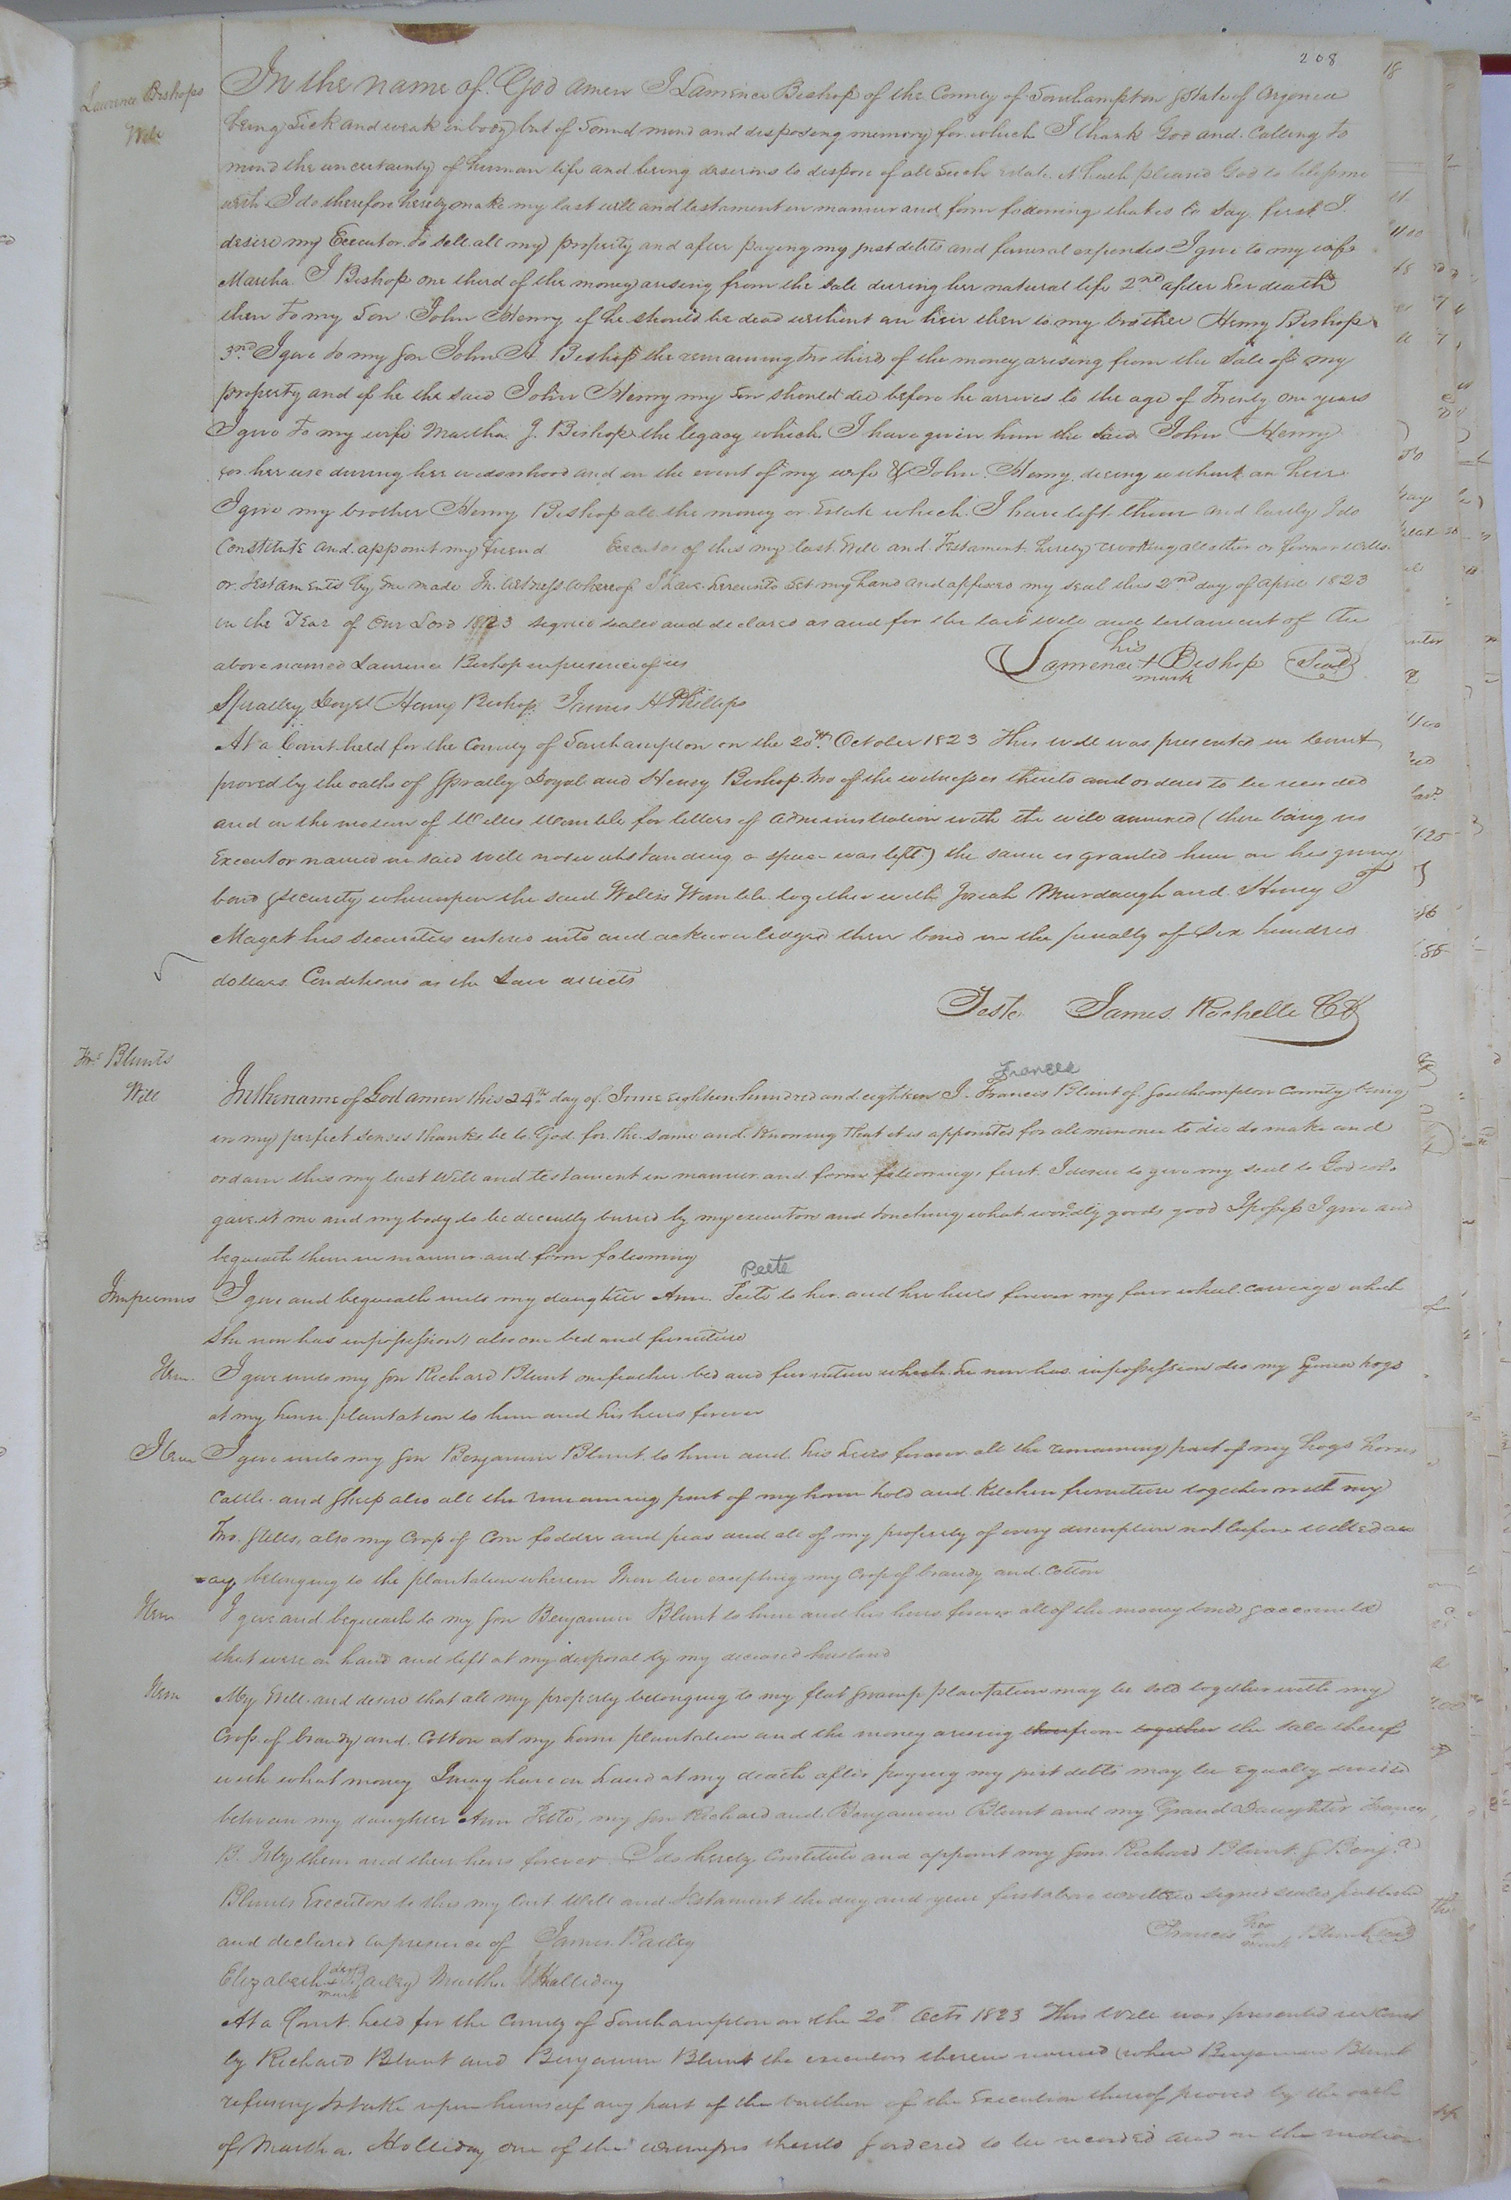 208
Lawrence Bishops
Will
In the name of God amen I Lawrence Bishop of the County of Southampton & State of Virginia
being Sick and weak in body but of Sound mind and disposing memory for which I thank God and Calling to
mind the uncertainty of human life and being desirous to dispose of all such estate it hath pleased God to bless me
with I do therefore hereby make my last will and testament in manner and form following that is to Say first I
desire my Executor to sell all my property and after paying my just debts and funeral expenses I give to my wife
Martha J Bishop one third of the money arising from the sale during her natural life 2nd after her death
then to my Son John Henry if he should be dead without an heir then to my brother Henry Bishop
3rd I give to my Son John H Bishop the remaining two thirds of the money arising from the Sale of my
property and if he the said John Henry my Son should die before he arrives to the age of Twenty one years
I give to my wife Martha J. Bishop the legacy which I have given him the said John Henry
for her use during her widowhood and in the event of my wife & John Henry dieing without an heir
I give my brother Henry Bishop all the money or Estate which I have left them and lastly I do
Constitute and appoint my friend Executor of this my last Will and Testament hereby revoking all other or former Wills
or testaments by me made In witness whereof I have hereunto Set my hand and affixed my seal this 2nd day of April 1823
in the Year of Our Lord 1823 signed sealed and declared as and for the last will and testament of the
above named Lawrence Bishop in presence of us
his
Lawrence + Bishop Seal
mark
Spratley Doyel Henry Bishop James H Phillips
At a Court held for the County of Southampton on the 20th October 1823 This will was presented in Court
proved by the oaths of Spratley Doyel and Henry Bishop two of the witnesses thereto and ordered to be recorded
and on the motion of Willis Womble for letters of administration with the will annexed (there being no
Executor named in said will notwithstanding a space was left) the same is granted him on his giving
bond & security whereupon the said Willis Womble together with Josiah Murdaugh and Henry T
Maget his securities entered into and acknowledged their bond in the penalty of Six hundred
dollars Conditions as the Law directs
Teste James Rochelle CC
Frs Blunts
Will
Frances
In the name of God amen this 24th day of June eighteen hundred and eighteen I Francis Blunt of Southampton County being
in my perfect senses thanks be to God for the same and knowing that it is appointed for all men once to die do make and
ordain this my last Will and testament in manner and form following, first I desire to give my soul to God who
gave it me and my body to be decently buried by my executors and touching what wordly goods good I possess I give and
bequeath them in manner and form following
Peete
Imprimus I give and bequeath unto my daughter Ann Peete to her and her heirs forever my four wheel carriage which
She now has in possession, also one bed and furniture
Item I give unto my Son Richard Blunt one feather bed and furniture which he now has in possession also my Guinea hogs
at my home plantation to him and his heirs forever
Item I give unto my Son Benjamin Blunt to him and his heirs forever all the remaining part of my hogs horses
Cattle and Sheep also all the remaining part of my house hold and Kitchen furniture together with my
Two Stills, also my crop of Corn fodder and peas and all of my property of every description not before willed aw
=ay, belonging to the plantation whereon I now live excepting my Crop of brandy and Cotton
Item I give and bequeath to my Son Benjamin Blunt to him and his heirs forever all of the money bonds & accounts
that were on hand and left at my disposal by my deceased husband
Item My Will and desire that all my property belonging to my flat Swamp plantation may be sold together with my
Crop of brandy and Cotton at my home plantation and the money arising from together the sale thereof
with what money I may have on hand at my death after paying my just debts may be equally divided
between my daughter Ann Peete, my Son Richard and Benjamin Blunt and my Grand Daughter Frances
B. them and their heirs forever. I do hereby Constitute and appoint my Sons Richard Blunt & Benja
Blunt Executors to this my last Will and testament the day and year first above written signed sealed published
and declared in presence of James Bailey
her
Francis + Blunt Seal
mark
Elizabeth Bailey Martha Holliday
mark
At a Court held for the County of Southampton on the 20th Octo 1823 This Will was presented in Court
by Richard Blunt and Benjamin Blunt the executors therein named (when Benjamin Blunt
refusing to take upon himself any part of the burthen of the Execution thereof proved by the oath
of Martha Holliday one of the witnesses thereto & ordered to be recorded and on the motion